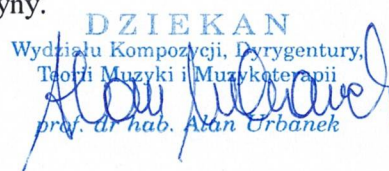 yny.
DZIEKAN
Wydziału Kompozycji, Dyrygentury,
Teorii Muzyki i Muzykoterapii
prof. dr hab. Alan Urbanek